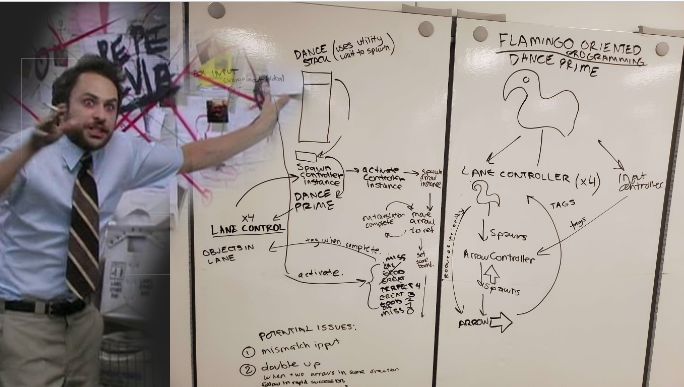 PEPE
SILVIA
INPUT
DANCE
STACK
(uses utility
wait to spawn)
Spawn
controller
instance
DANCE
PRIME
activate
controller
instance
spawn
arrow
instance
move
arrow
to ref
complete
set
x4
LANE CONTROL
OBJECTS IN
LANE
tag when complete
activate.
MISS
GOOD
GREAT
PERFECT 4
GREAT 3
GOOD 2
MISS 0
POTENTIAL ISSUES:
① mismatch input
② double up
when two arrows in same direction
follow in rapid succession
FLAMINGO ORIENTED
PROGRAMMING
DANCE PRIME
LANE CONTROLLER (x4)
Input
Controller
TAGS
tags
Spawns
ArrowController
Spawns
ARROW